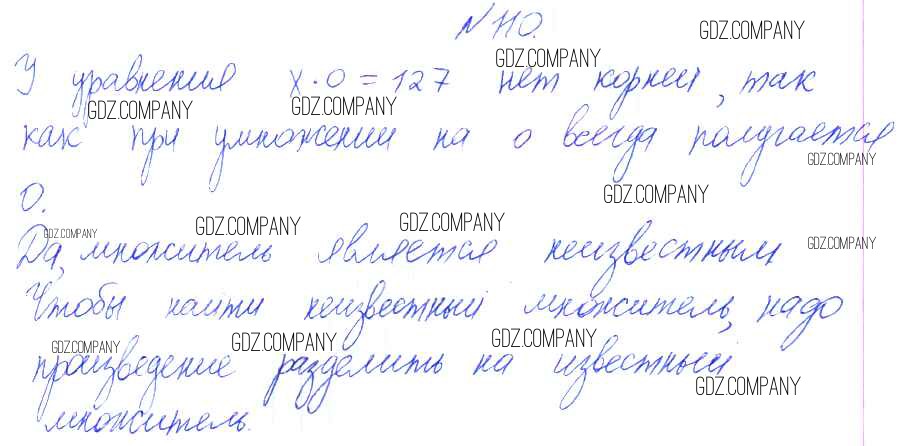 №110.
GDZ.COMPANY
GDZ.COMPANY
У уравнения x·0=127 нет корней, так
GDZ.COMPANY GDZ.COMPANY
как при умножении на 0 всегда получается
GDZ.COMPANY
0.
GDZ.COMPANY
GDZ.COMPANY GDZ.COMPANY GDZ.COMPANY GDZ.COMPANY
Да, множитель является неизвестным
Чтобы найти неизвестный множитель, надо
GDZ.COMPANY GDZ.COMPANY GDZ.COMPANY
произведение разделить на известный
GDZ.COMPANY
множитель.